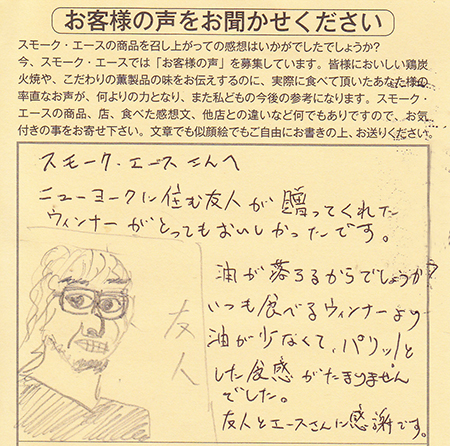 お客様の声をお聞かせください
スモーク・エースの商品を召し上がっての感想はいかがでしたでしょうか?
今、スモーク・エースでは「お客様の声」を募集しています。皆様においしい鶏炭
火焼や、こだわりの薫製品の味をお伝えするのに、実際に食べて頂いたあなた様の
率直なお声が、何よりの力となり、また私どもの今後の参考になります。スモーク・
エースの商品、店、食べた感想文、他店との違いなど何でもありですので、お気
付きの事をお寄せ下さい。文章でも似顔絵でもご自由にお書きの上、お送りください。
スモーク・エースさんへ
ニューヨークに住む友人が贈ってくれた
ウィンナーがとってもおいしかったです。
油が落ちるからでしょうか?
いつも食べるウィンナーより
油が少なくて、パリッ!と
した食感がたまりません
でした。
友人とエースさんに感謝です。
友人